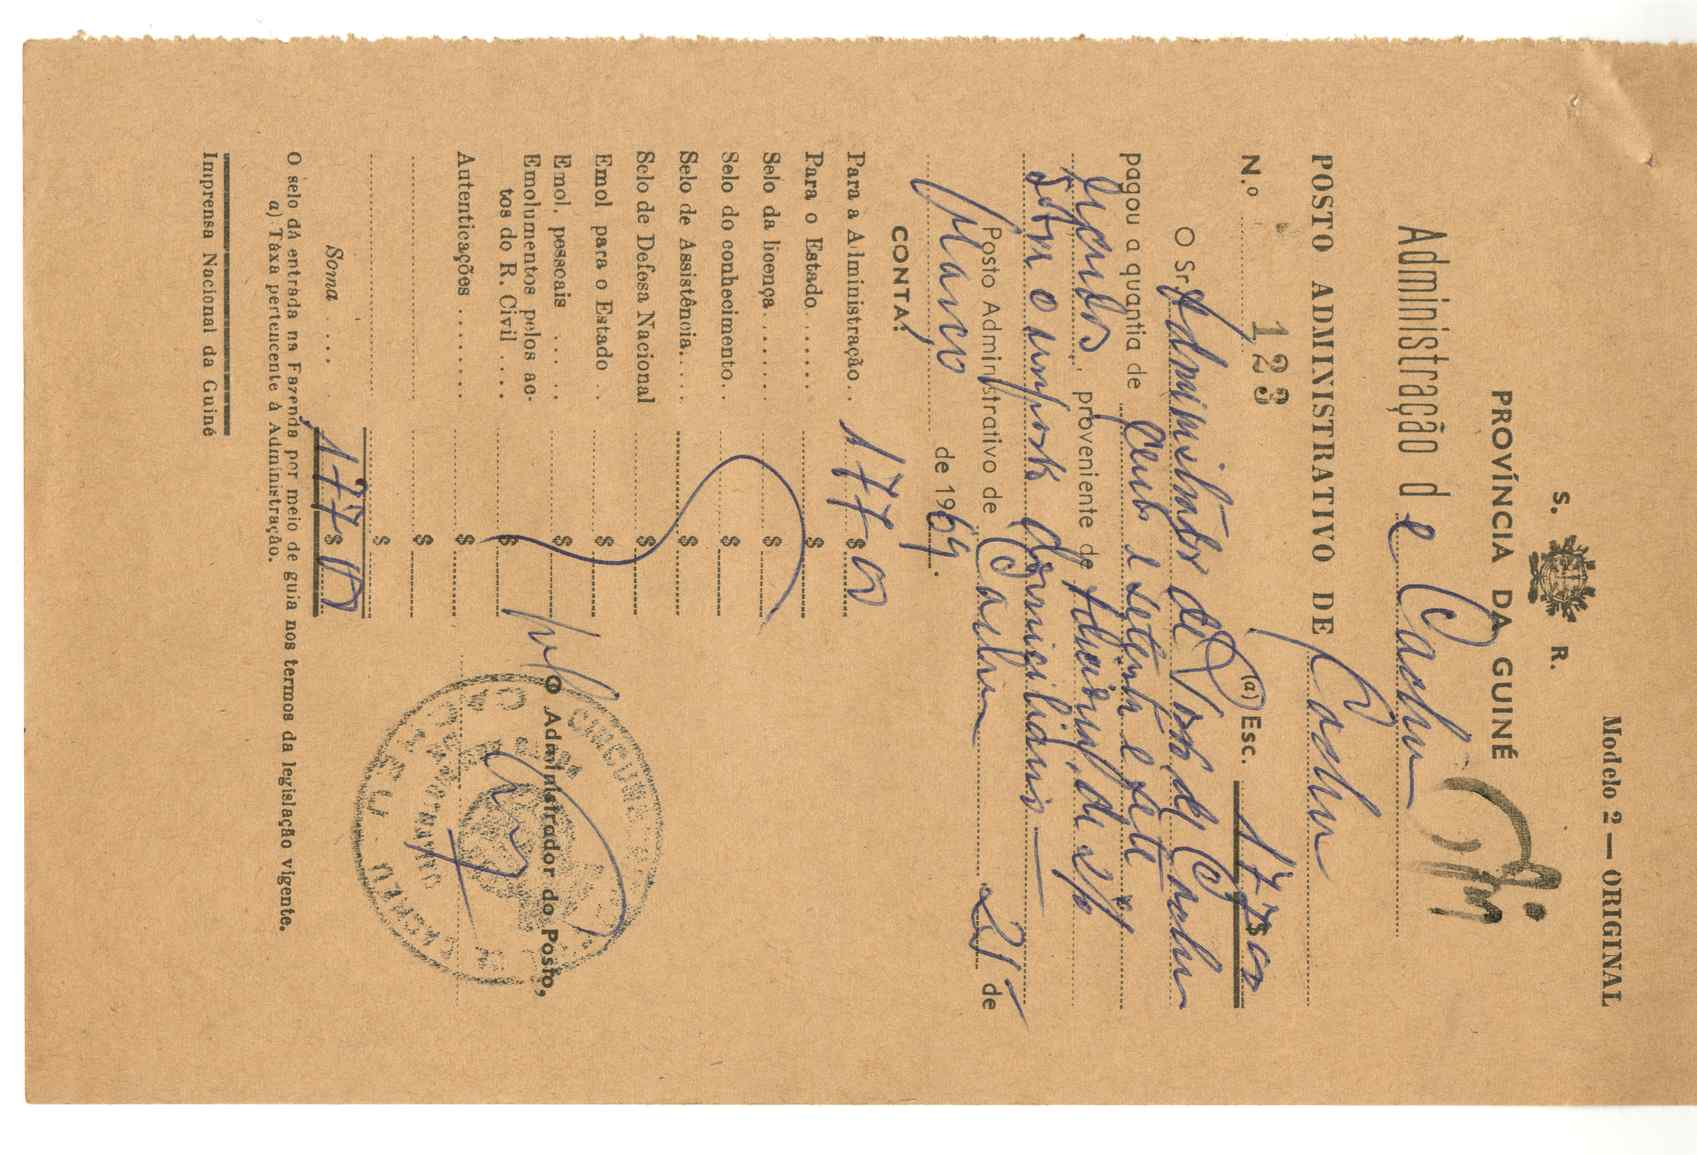 Modelo 2 — ORIGINAL
S. R.
PROVÍNCIA DA GUINÉ
Administração de Cacheu
POSTO ADMINISTRATIVO DE Cacheu
N.º 123 (a) Esc. 177$00
O Sr. Administrador do Posto de Cacheu
pagou a quantia de cento e setenta e sete
escudos, proveniente de Adicional de 2%
sobre o imposto domiciliário
Posto Administrativo de Cacheu 21 de
Março de 1969.
CONTA:
Para a Administração.. 177$00
Para o Estado...... $
Selo da licença...... $
Selo do conhecimento.. $
Selo de Assistência.... $
Selo de Defesa Nacional $
Emol para o Estado .. $
Emol. pessoais .... .. $
Emolumentos pelos ac-
tos do R. Civil .... $
Autenticações ....... $
$
$
Soma .... 177$00
O Administrador do Posto,
O selo dá entrada na Fazenda por meio de guia nos termos da legislação vigente.
a) Taxa pertencente à Administração.
Imprensa Nacional da Guiné